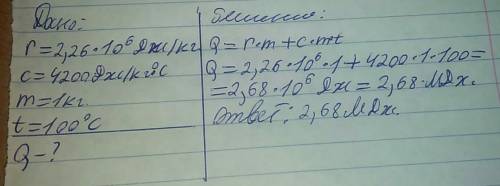 Дано:
r=2,26·10⁶Дж/кг
c=4200Дж/кг°C
m=1кг.
t=100°C
Q-?
Решение:
Q=r·m+c·mt
Q=2,26·10⁶·1+4200·1·100=
=2,68·10⁶ Дж=2,68·МДж.
Ответ: 2,68МДж.